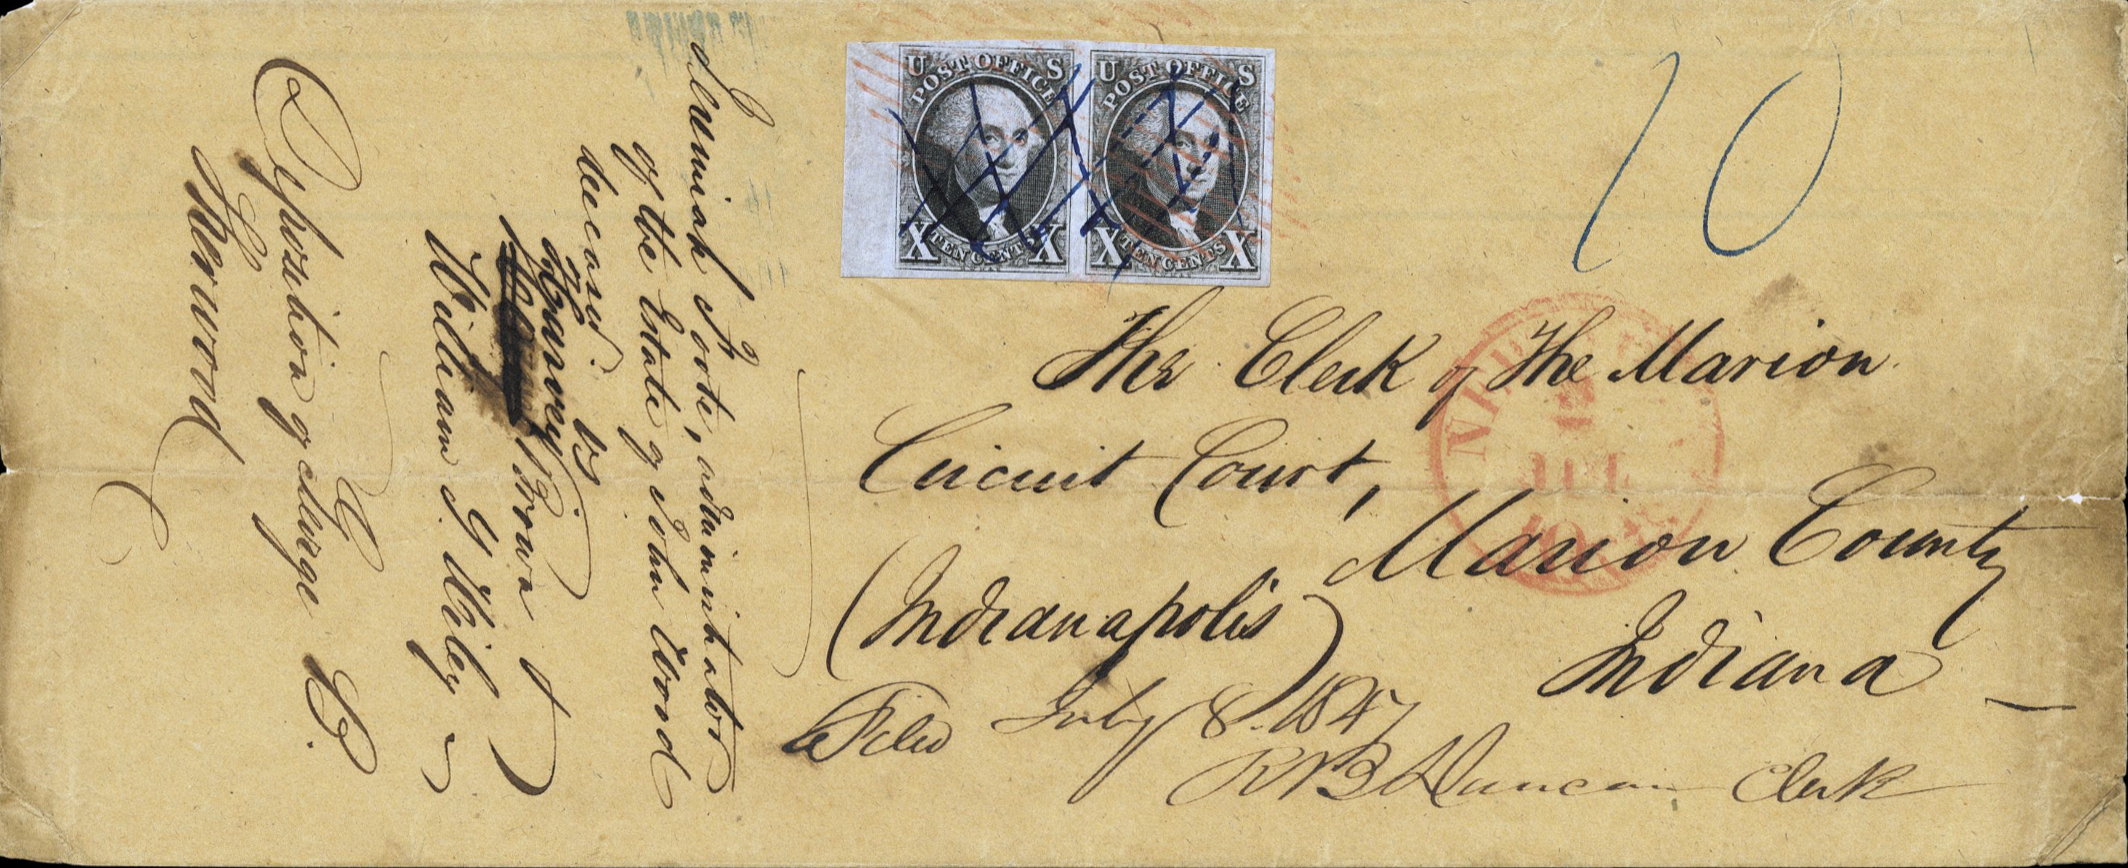 U S
POST OFFICE
X TEN CENTS X
U S
POST OFFICE
X TEN CENTS X
10
NEW
2
JUL
The Clerk of The Marion
Circuit Court,
Marion County
(Indianapolis)
Indiana
Filed July 8. 1847
R B Duncan Clerk
Jeremiah Foote, administrator
of the Estate of John Wood
deceased
vs
Harvey
Brown &
William J Wiley
Deposition of George B.